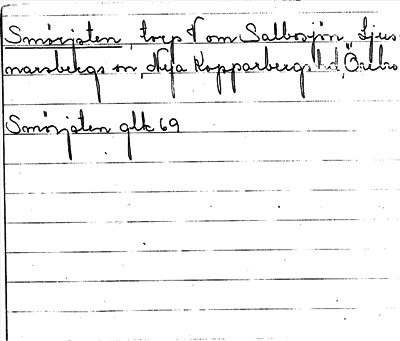 Smörjsten, torp V om Salbosjön, Ljus-
narsbergs sn, Nya Kopparbergs hd, Örebro
Smörjsten glk 69